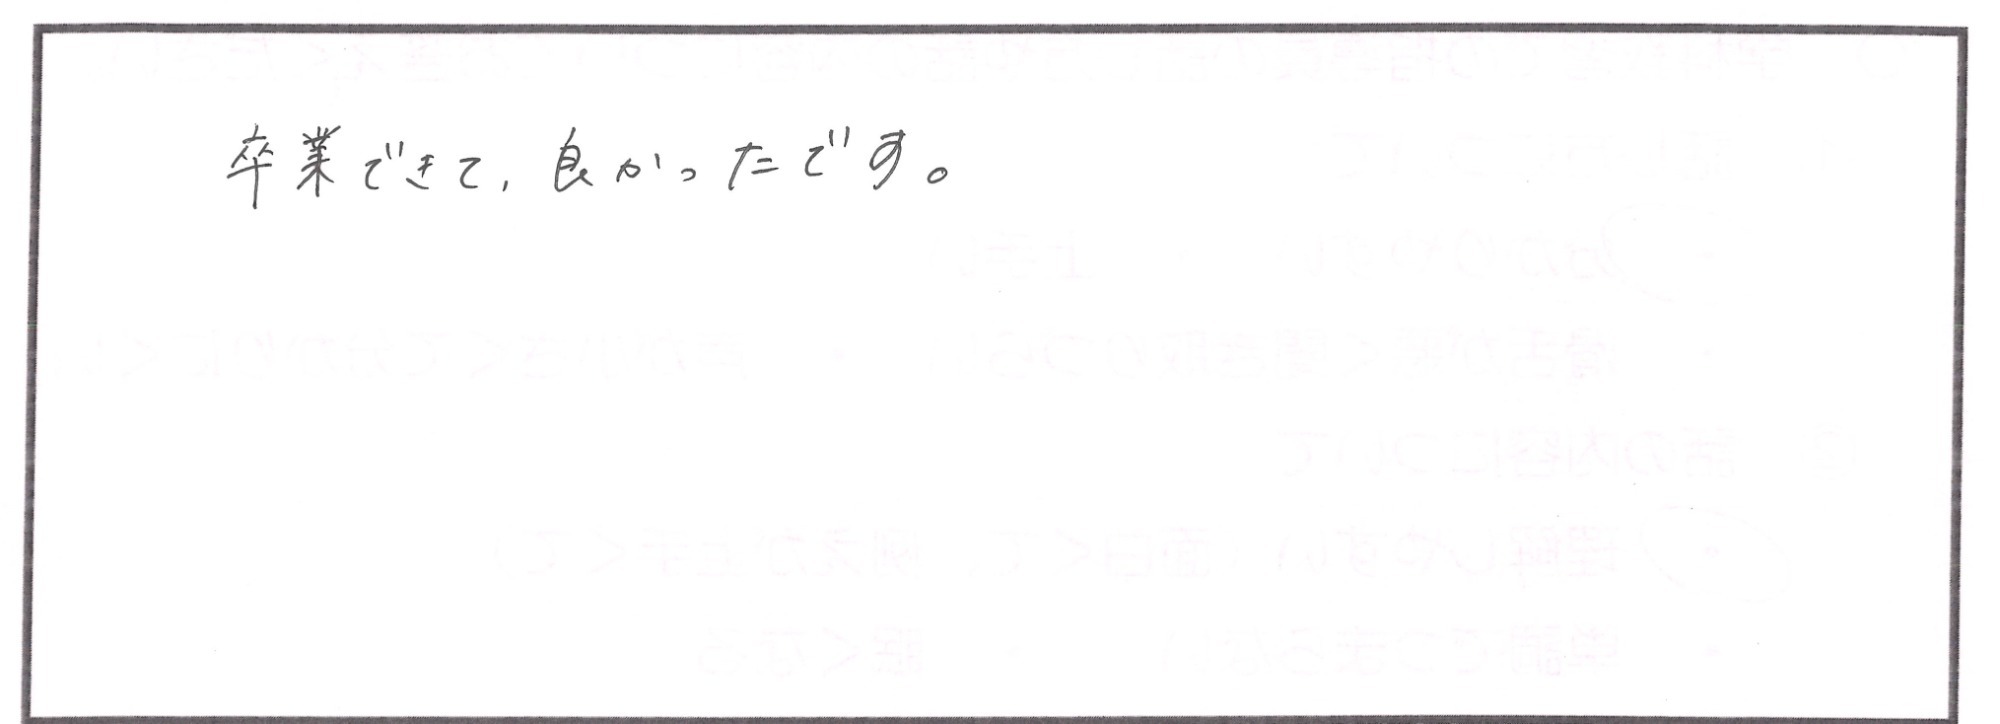 卒業できて、良かったです。